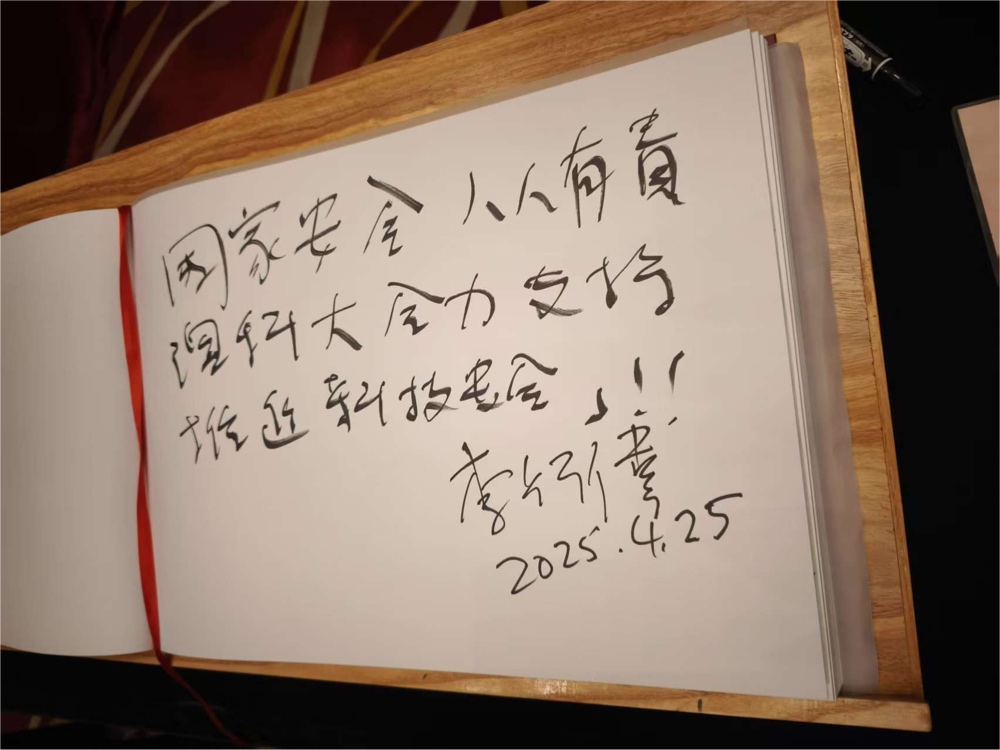 国家安全 人人有責
澳科大全力支持
推進科技安全，!!
李行偉
2025.4.25